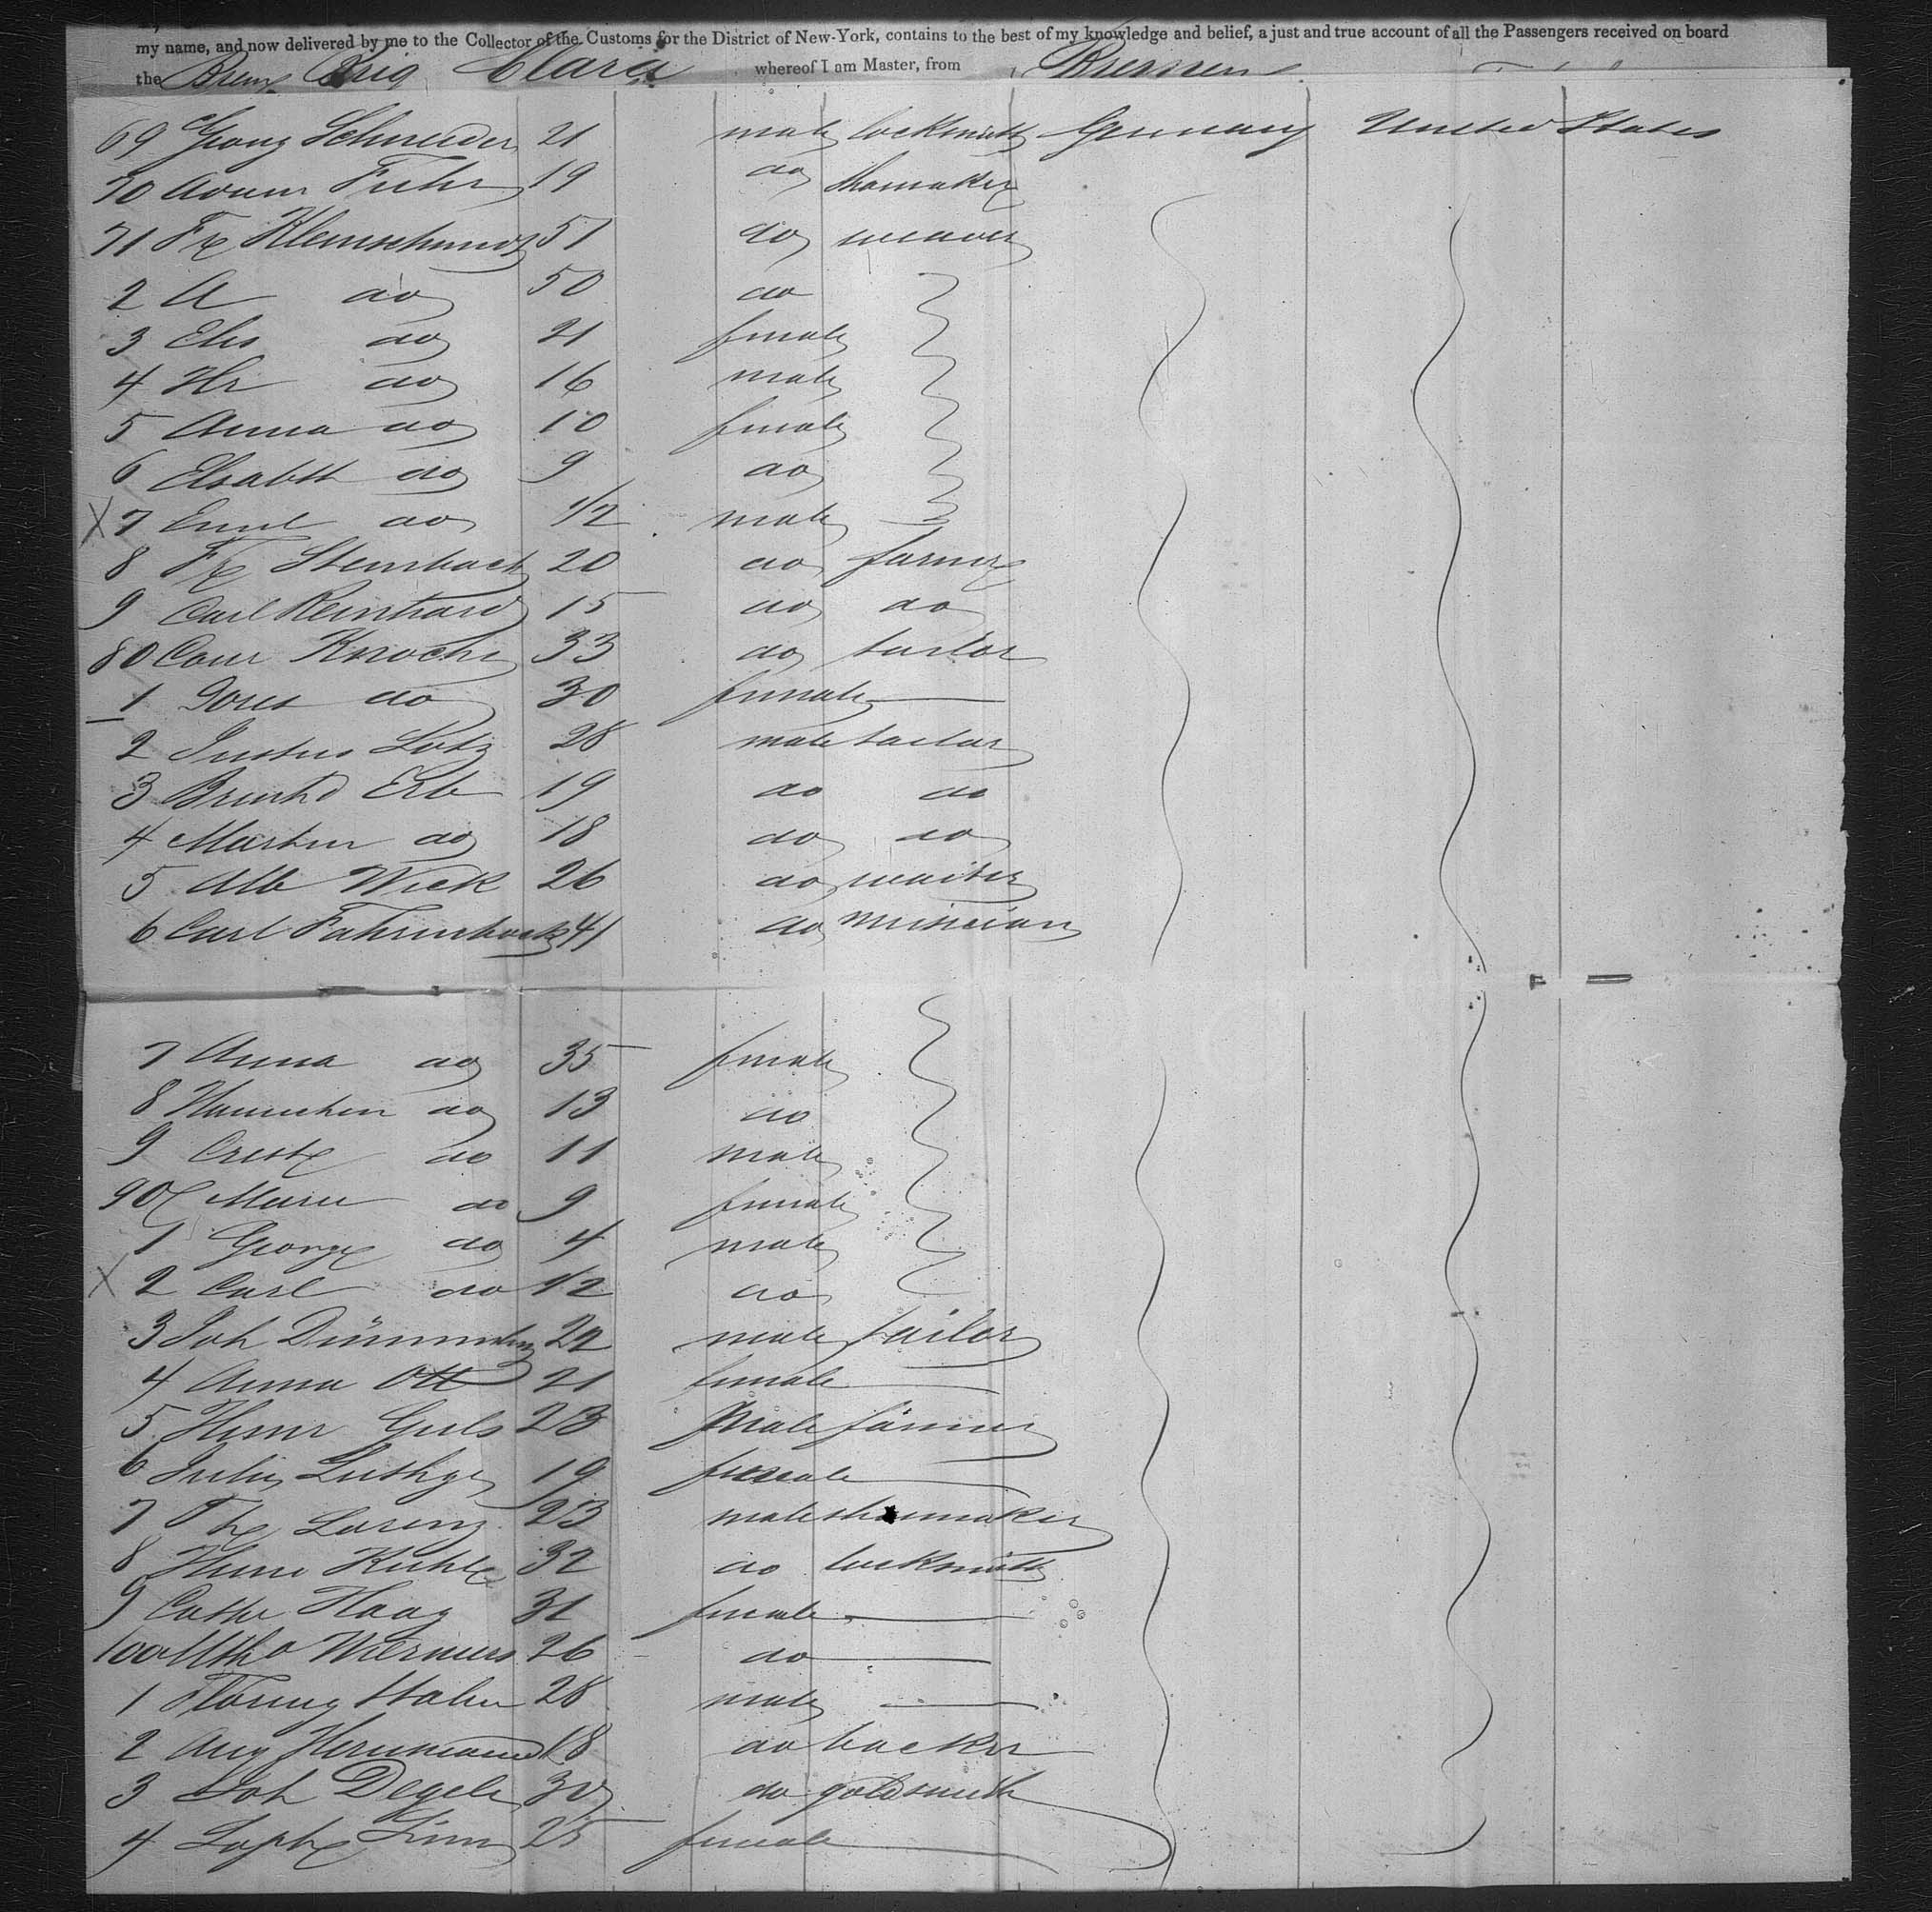 my name, and now delivered by me to the Collector of the Customs for the District of New-York, contains to the best of my knowledge and belief, a just and true account of all the Passengers received on board
the Brem Brig Clara whereof I am Master, from Bremen
69 Georg Schneider 21 male locksmith Germany United States
70 Adam Fuhr 19 do shomaker
71 Fr Kleinschmidt 51 do weaver
2 A do 50 do
3 Elis do 21 female
4 Hr do 16 male
5 Anna do 10 female
6 Elsabth do 9 do
X 7 Emil do 1/2 male
8 Fr Steinbach 20 do farmer
9 Carl Reinhard 15 do do
80 Conr Knoche 33 do tailor
1 do 30 female
2 Justus Lotz 28 male tailor
3 Bernhd Erb 19 do do
4 Martin do 18 do do
5 Alb Wick 26 do waiter
6 Carl Fahrenbach 41 do musician
7 Anna do 35 female
8 Hannchen do 13 do
9 do 11 male
90 Marie do 9 female
1 George do 4 male
X 2 Carl do 1/2 do
3 Joh 22 male tailor
4 Anna Ott 21 female
5 Henr 23 male farmer
6 Julie 19 female
7 Lorenz 23 male shoemaker
8 32 do locksmith
9 Cathe Haag 31 female
100 26 do
1 28 male
2 Aug Herrmann 18 do backer
3 Joh Degele 30 do goldsmith
4 Sophe 25 female